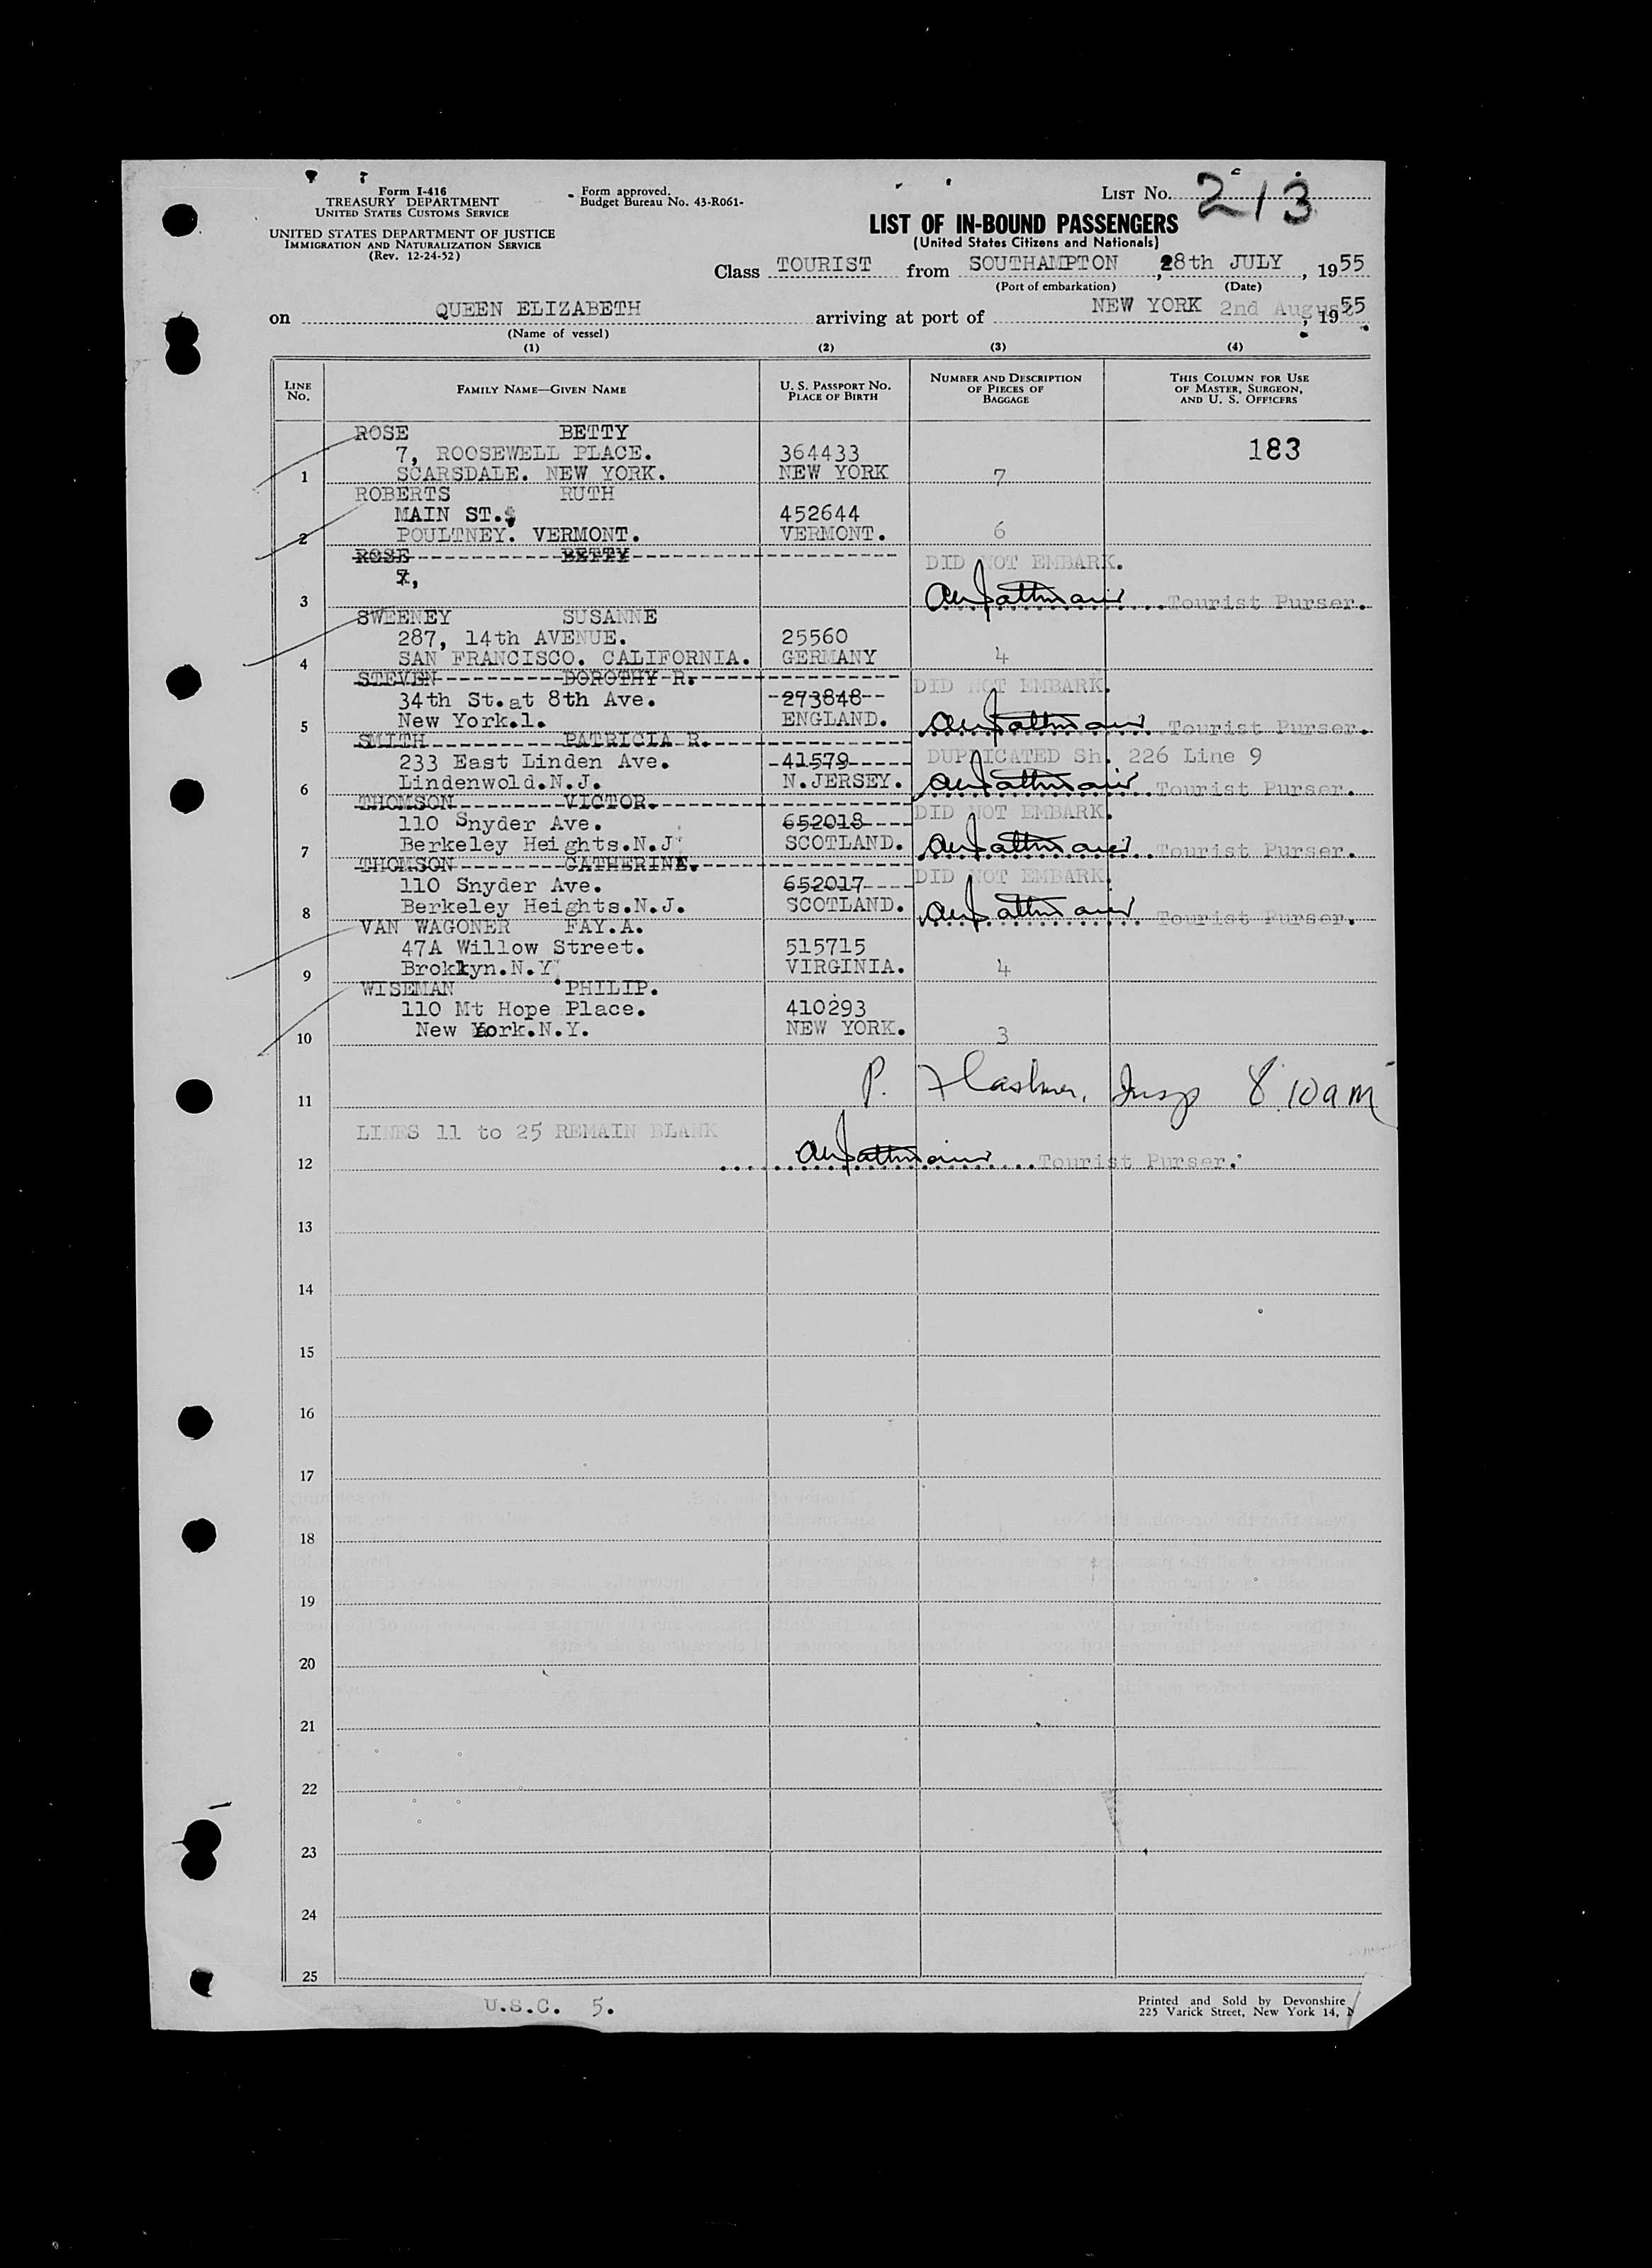 Form I-416
TREASURY DEPARTMENT
UNITED STATES CUSTOMS SERVICE
UNITED STATES DEPARTMENT OF JUSTICE
IMMIGRATION AND NATURALIZATION SERVICE
(Rev. 12-24-52)
Form approved.
Budget Bureau No. 43-R061-
LIST No. 213
LIST OF IN-BOUND PASSENGERS
(United States Citizens and Nationals)
Class TOURIST from SOUTHAMPTON, 28th JULY, 1955
(Port of embarkation) (Date)
on QUEEN ELIZABETH arriving at port of NEW YORK 2nd August, 1955
(Name of vessel)
(1) (2) (3) (4)
LINE No. FAMILY NAME—GIVEN NAME U. S. PASSPORT No. PLACE OF BIRTH NUMBER AND DESCRIPTION OF PIECES OF BAGGAGE THIS COLUMN FOR USE OF MASTER, SURGEON, AND U. S. OFFICERS
ROSE BETTY
7, ROOSEWELL PLACE. 364433 183
1 SCARSDALE. NEW YORK. NEW YORK 7
ROBERTS RUTH
MAIN ST. 452644
2 POULTNEY. VERMONT. VERMONT. 6
ROSE BETTY DID NOT EMBARK.
7,
3 Tourist Purser.
SWEENEY SUSANNE
287, 14th AVENUE. 25560
4 SAN FRANCISCO. CALIFORNIA. GERMANY 4
STEVEN DOROTHY R. DID NOT EMBARK.
34th St.at 8th Ave. 273848
5 New York.1. ENGLAND. Tourist Purser.
SMITH PATRICIA R.
233 East Linden Ave. 41579 DUPLICATED Sh. 226 Line 9
6 Lindenwold.N.J. N.JERSEY. Tourist Purser.
THOMSON VICTOR. DID NOT EMBARK.
110 Snyder Ave. 652018
7 Berkeley Heights.N.J. SCOTLAND. Tourist Purser.
THOMSON CATHERINE. DID NOT EMBARK.
110 Snyder Ave. 652017
8 Berkeley Heights.N.J. SCOTLAND. Tourist Purser.
VAN WAGONER FAY.A.
47A Willow Street. 515715
9 Broklyn.N.Y. VIRGINIA. 4
WISEMAN PHILIP.
110 Mt Hope Place. 410293
10 New York.N.Y. NEW YORK. 3
11 P. Insp 8.10am
LINES 11 to 25 REMAIN BLANK
12 Tourist Purser.
13
14
15
16
17
18
19
20
21
22
23
24
25
U.S.C. 5.
Printed and Sold by Devonshire
225 Varick Street, New York 14,